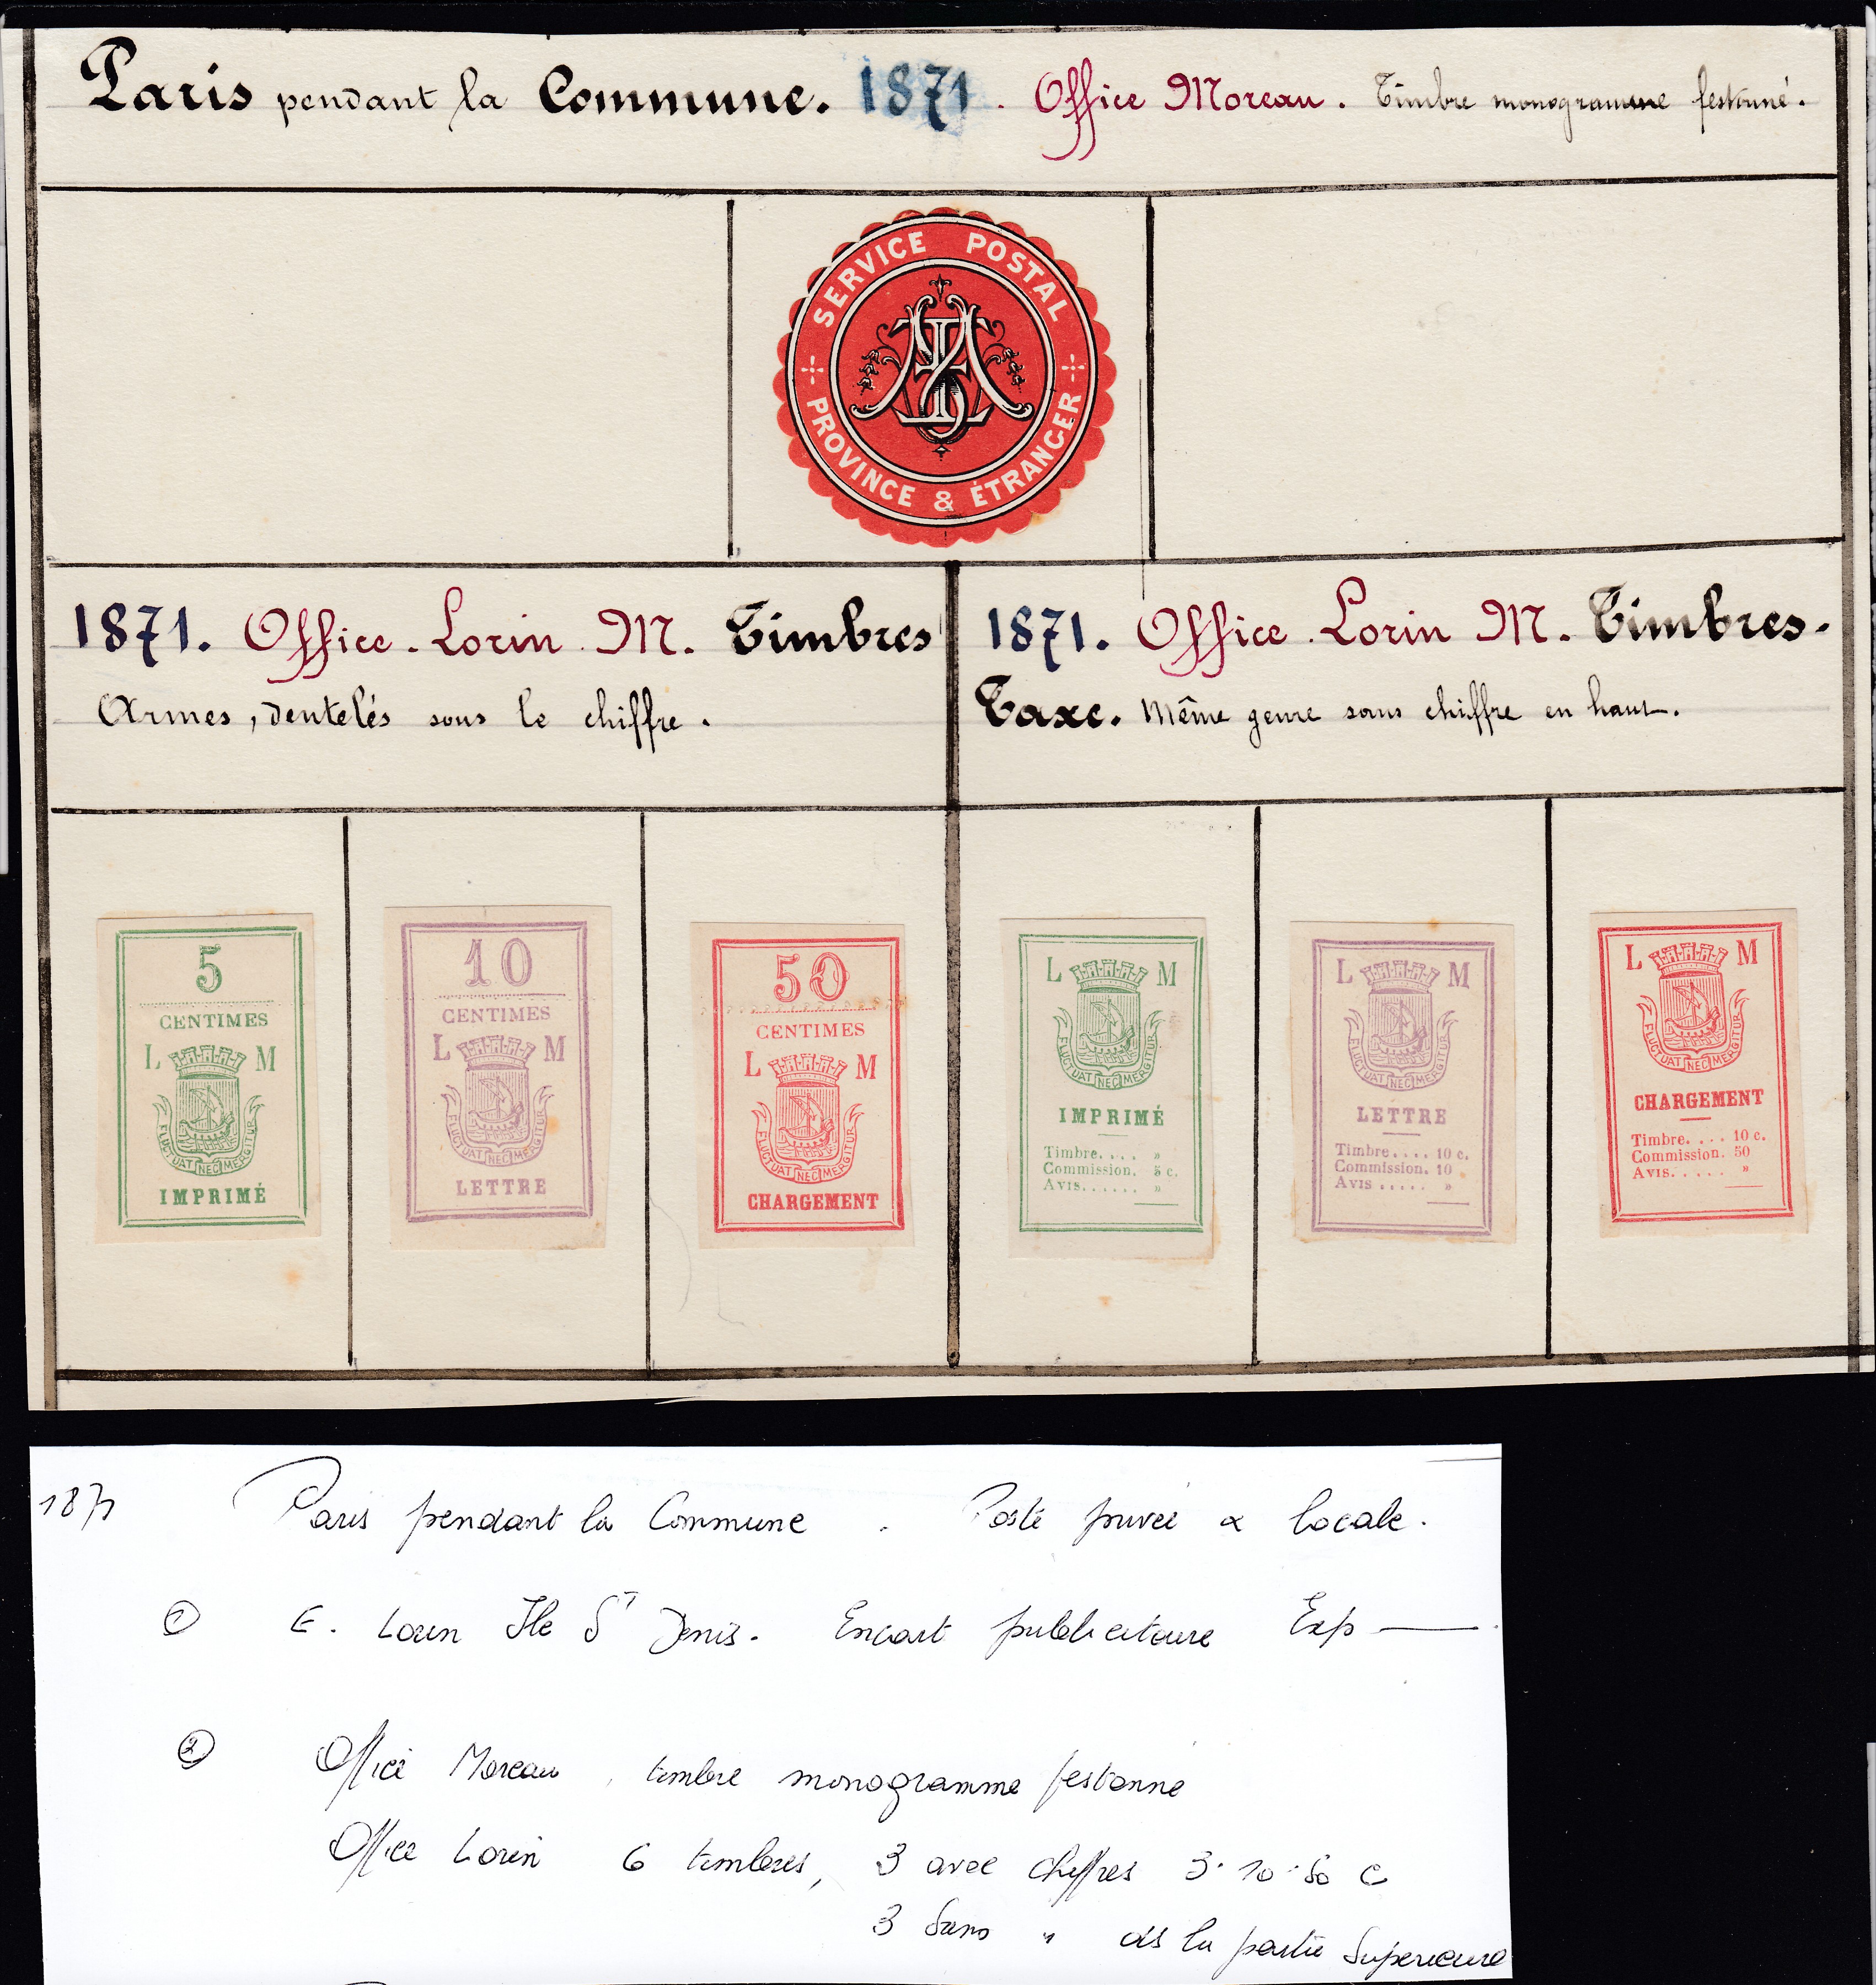 Paris pendant la Commune. 1871. Office Moreau. Timbre monogramme festonné.
SERVICE POSTAL
PROVINCE & ÉTRANGER
1871. Office. Lorin. M. Timbres
Armes, dentelés sous le chiffre.
1871. Office. Lorin M. Timbres-
Taxe. Même genre sans chiffre en haut.
5
CENTIMES
L M
FLUCTUAT NEC MERGITUR
IMPRIMÉ
10
CENTIMES
L M
FLUCTUAT NEC MERGITUR
LETTRE
50
CENTIMES
L M
FLUCTUAT NEC MERGITUR
CHARGEMENT
L M
FLUCTUAT NEC MERGITUR
IMPRIMÉ
Timbre.... »
Commission. 5 c.
Avis...... »
L M
FLUCTUAT NEC MERGITUR
LETTRE
Timbre.... 10 c.
Commission. 10
Avis..... »
L M
FLUCTUAT NEC MERGITUR
CHARGEMENT
Timbre.... 10 c.
Commission. 50
Avis..... »
1871 Paris pendant la Commune. Poste privée & locale.
① E. Lorin Ile S^t Denis. Encart publicitaire Exp —
② Office Moreau, timbre monogramme festonné
Office Lorin 6 timbres, 3 avec chiffres 5.10.50 c
3 sans " ds la partie Superieure